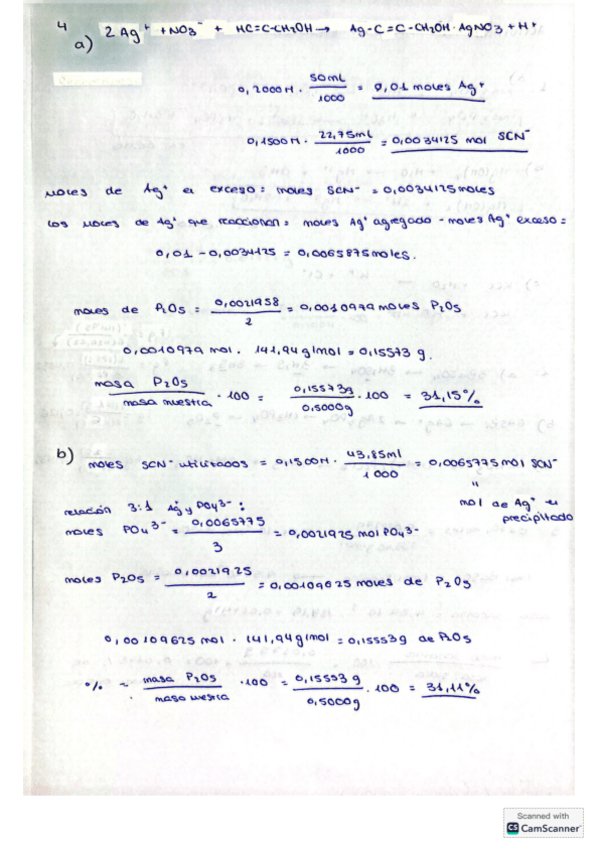 4
a) 2Ag⁺ + NO₃⁻ + HC≡C-CH₂OH → Ag-C≡C-CH₂OH·AgNO₃ + H⁺
0,2000M · 50mL/1000 = 0,01 moles Ag⁺
0,1500M · 22,75mL/1000 = 0,0034125 mol SCN⁻
moles de Ag⁺ en exceso = moles SCN⁻ = 0,0034125 moles
Los moles de Ag⁺ que reaccionan = moles Ag⁺ agregado - moles Ag⁺ exceso =
0,01 - 0,0034125 = 0,0065875 moles.
moles de P₂O₅ = 0,0021958/2 = 0,0010979 moles P₂O₅
0,0010979 mol · 141,94 g/mol = 0,15573 g.
masa P₂O₅/masa muestra · 100 = 0,15573g/0,5000g · 100 = 31,15%
b) moles SCN⁻ utilizados = 0,1500M · 43,85ml/1000 = 0,0065775 mol SCN⁻
"
mol de Ag⁺ en
precipitado
relación 3:1 Ag⁺ y PO₄³⁻:
moles PO₄³⁻ = 0,0065775/3 = 0,0021925 mol PO₄³⁻
moles P₂O₅ = 0,0021925/2 = 0,00109625 moles de P₂O₅
0,00109625 mol · 141,94 g/mol = 0,15553g de P₂O₅
% = masa P₂O₅/masa muestra · 100 = 0,15553 g/0,5000g · 100 = 31,11%
Scanned with
CS CamScanner